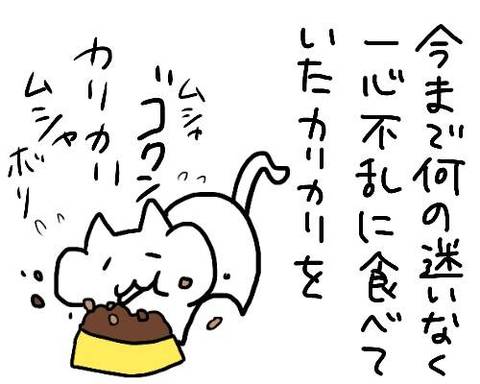 今まで何の迷いなく
一心不乱に食べて
いたカリカリを
ムシャ
ゴクン
カリカリ
ムシャ
ボリ